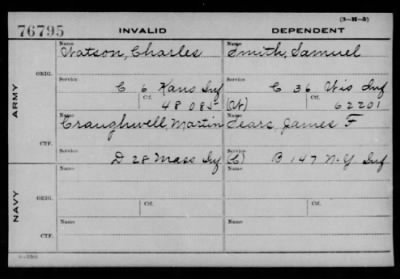 (3-81-5)
76795 INVALID DEPENDENT
Name Watson, Charles Name Smith, Samuel
ORIG.
Service Service
C 6 Kans Inf C 36 Wis Inf
Ctf. Ctf.
48085 (A) 62201
ARMY
Name Craughwell, Martin Name Sears, James F
CTF.
Service Service
D 28 Mass Inf (C) B 147 N.Y Inf
Name Name
ORIG.
Service Ctf. Service Ctf.
NAVY
Name Name
CTF.